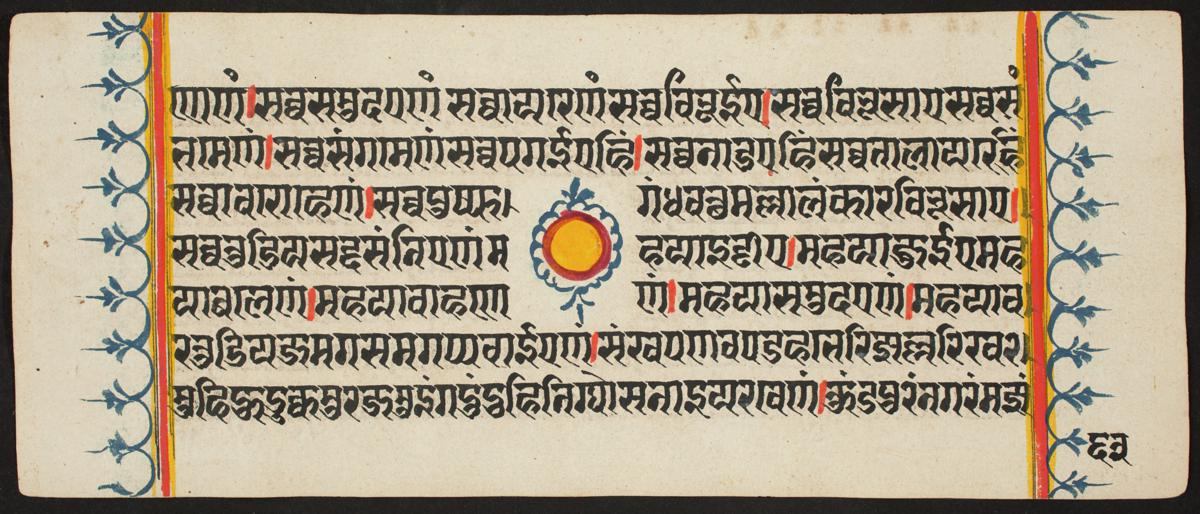 णेणं।सव्वसमुदएणं सव्वायरेणं सव्वविभूईए।सव्वविभूसाएसव्वसं
भमेणं।सव्वसंगमेणंसव्वपगईएहिं।सव्वनाडएहिंसव्वतालायरेहिं
सव्वावरोहेणं।सव्वपुप्फ। गंधवत्थमल्लालंकारविभूसाए।
सव्वतुडियसद्दसंनिएणं म हयाइड्ढीए।महयाजुईएमह
याबलेणं।महयावाहणे णं।महयासमुदएणं।महयाव
रतुडियजमगसमगप्पवाईएणं।संखपणवपडहभेरिझल्लरिखर
मुहिहुडुक्कमुरजमुइंगदुंदुहिनिग्घोसनाइयरवेणं।कुंडपुरंनगरंमज्झं
६३